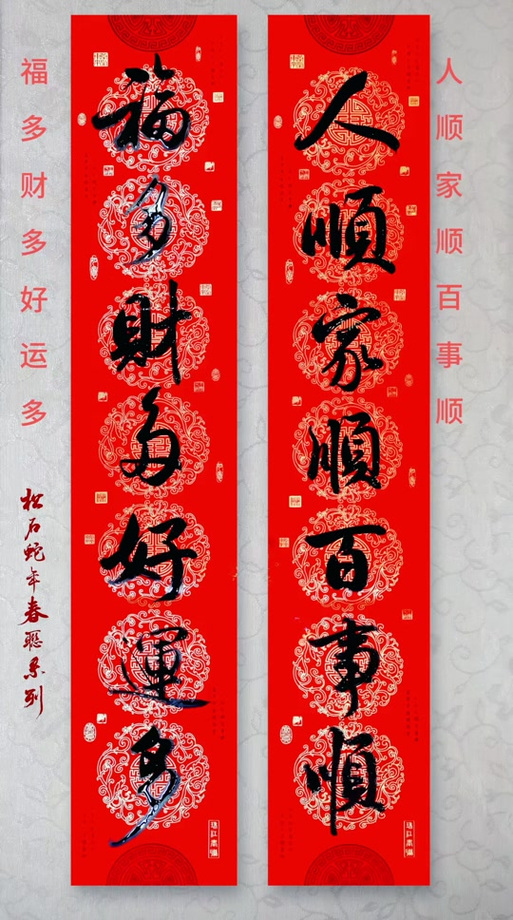 人顺家顺百事顺
人順家順百事順
福多財多好運多
福多财多好运多
松石蛇年春联系列